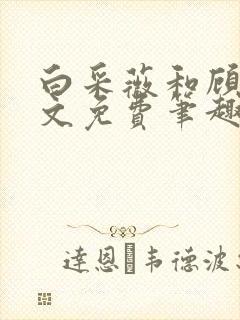 白采薇和顾
文免费笔趣
达恩·韦德波